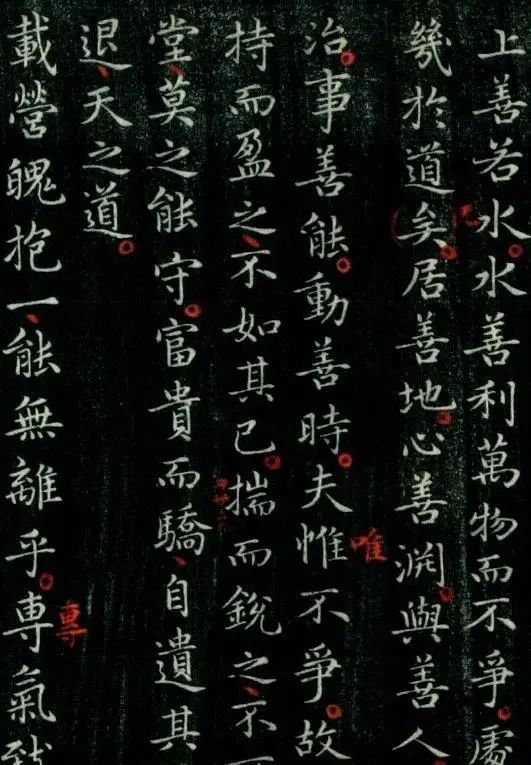 上善若水。水善利萬物而不爭。處
幾於道(矣)。居善地。心善淵。與善人
治。事善能。動善時。夫惟不爭。故
唯
持而盈之、不如其已。揣而銳之、不
堂、莫之能守。富貴而驕、自遺其
退、天之道。
載營魄抱一、能無離乎。専氣致
專